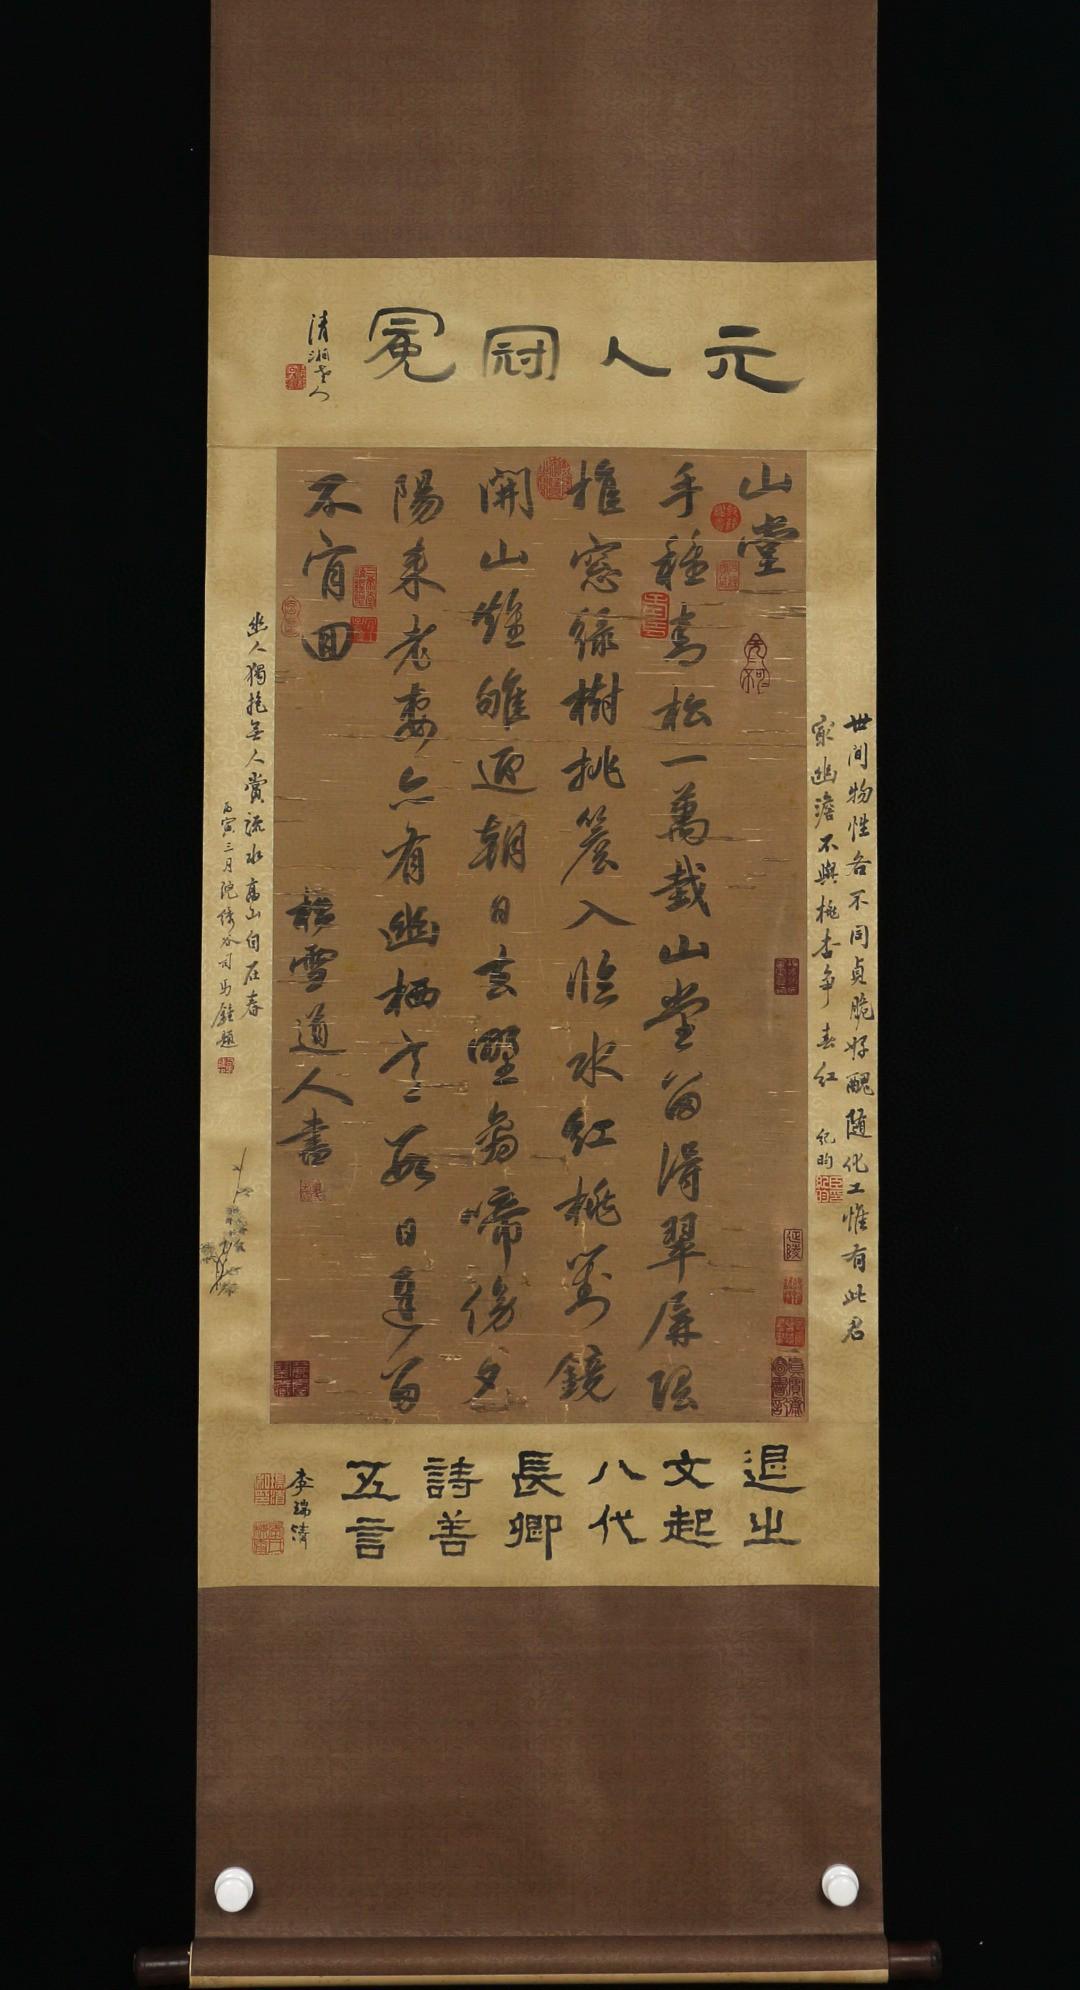 元人冠冕
清湘老人
山堂
手種喬松一萬栽山堂留得翠屏隈
推窓綠樹挑簷入臨水紅桃對鏡
開山雉雊迎朝日玄野禽啼傍夕
陽來老妻亦有幽栖意數日蓬留
不肯回
松雪道人書
世間物性各不同貞脆好醜隨化工惟有此君
家幽澹不與桃杏爭春紅
紀昀
幽人獨抱無人賞流水高山自在春
丙寅三月 司馬鐘題
退之
文起
八代
長卿
詩善
五言
李瑞清